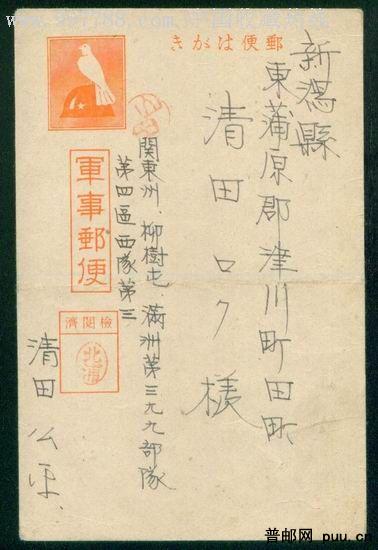 きがは便郵
新潟縣
東蒲原郡津川町田町
清田ロク様
関東州、柳樹屯、滿洲第三九九部隊
第四區西隊第三
軍事郵便
濟閲檢
北浦
清田公平
普邮网 puu.cn